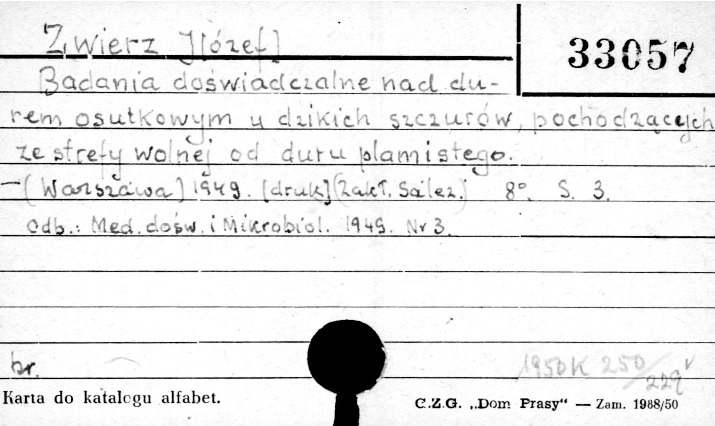 Zwierz J[ózef]
33057
Badania doświadczalne nad du-
rem osutkowym u dzikich szczurów, pochodzących
ze strefy wolnej od duru plamistego.
—(Warszawa) 1949. [druk] (Zakł. Salez.) 8°. S. 3.
Odb.: Med. dośw. i Mikrobiol. 1949. Nr 3.
br.
1950 K 250/229
Karta do katalogu alfabet.
C.Z.G. „Dom Prasy“ — Zam. 1988/50